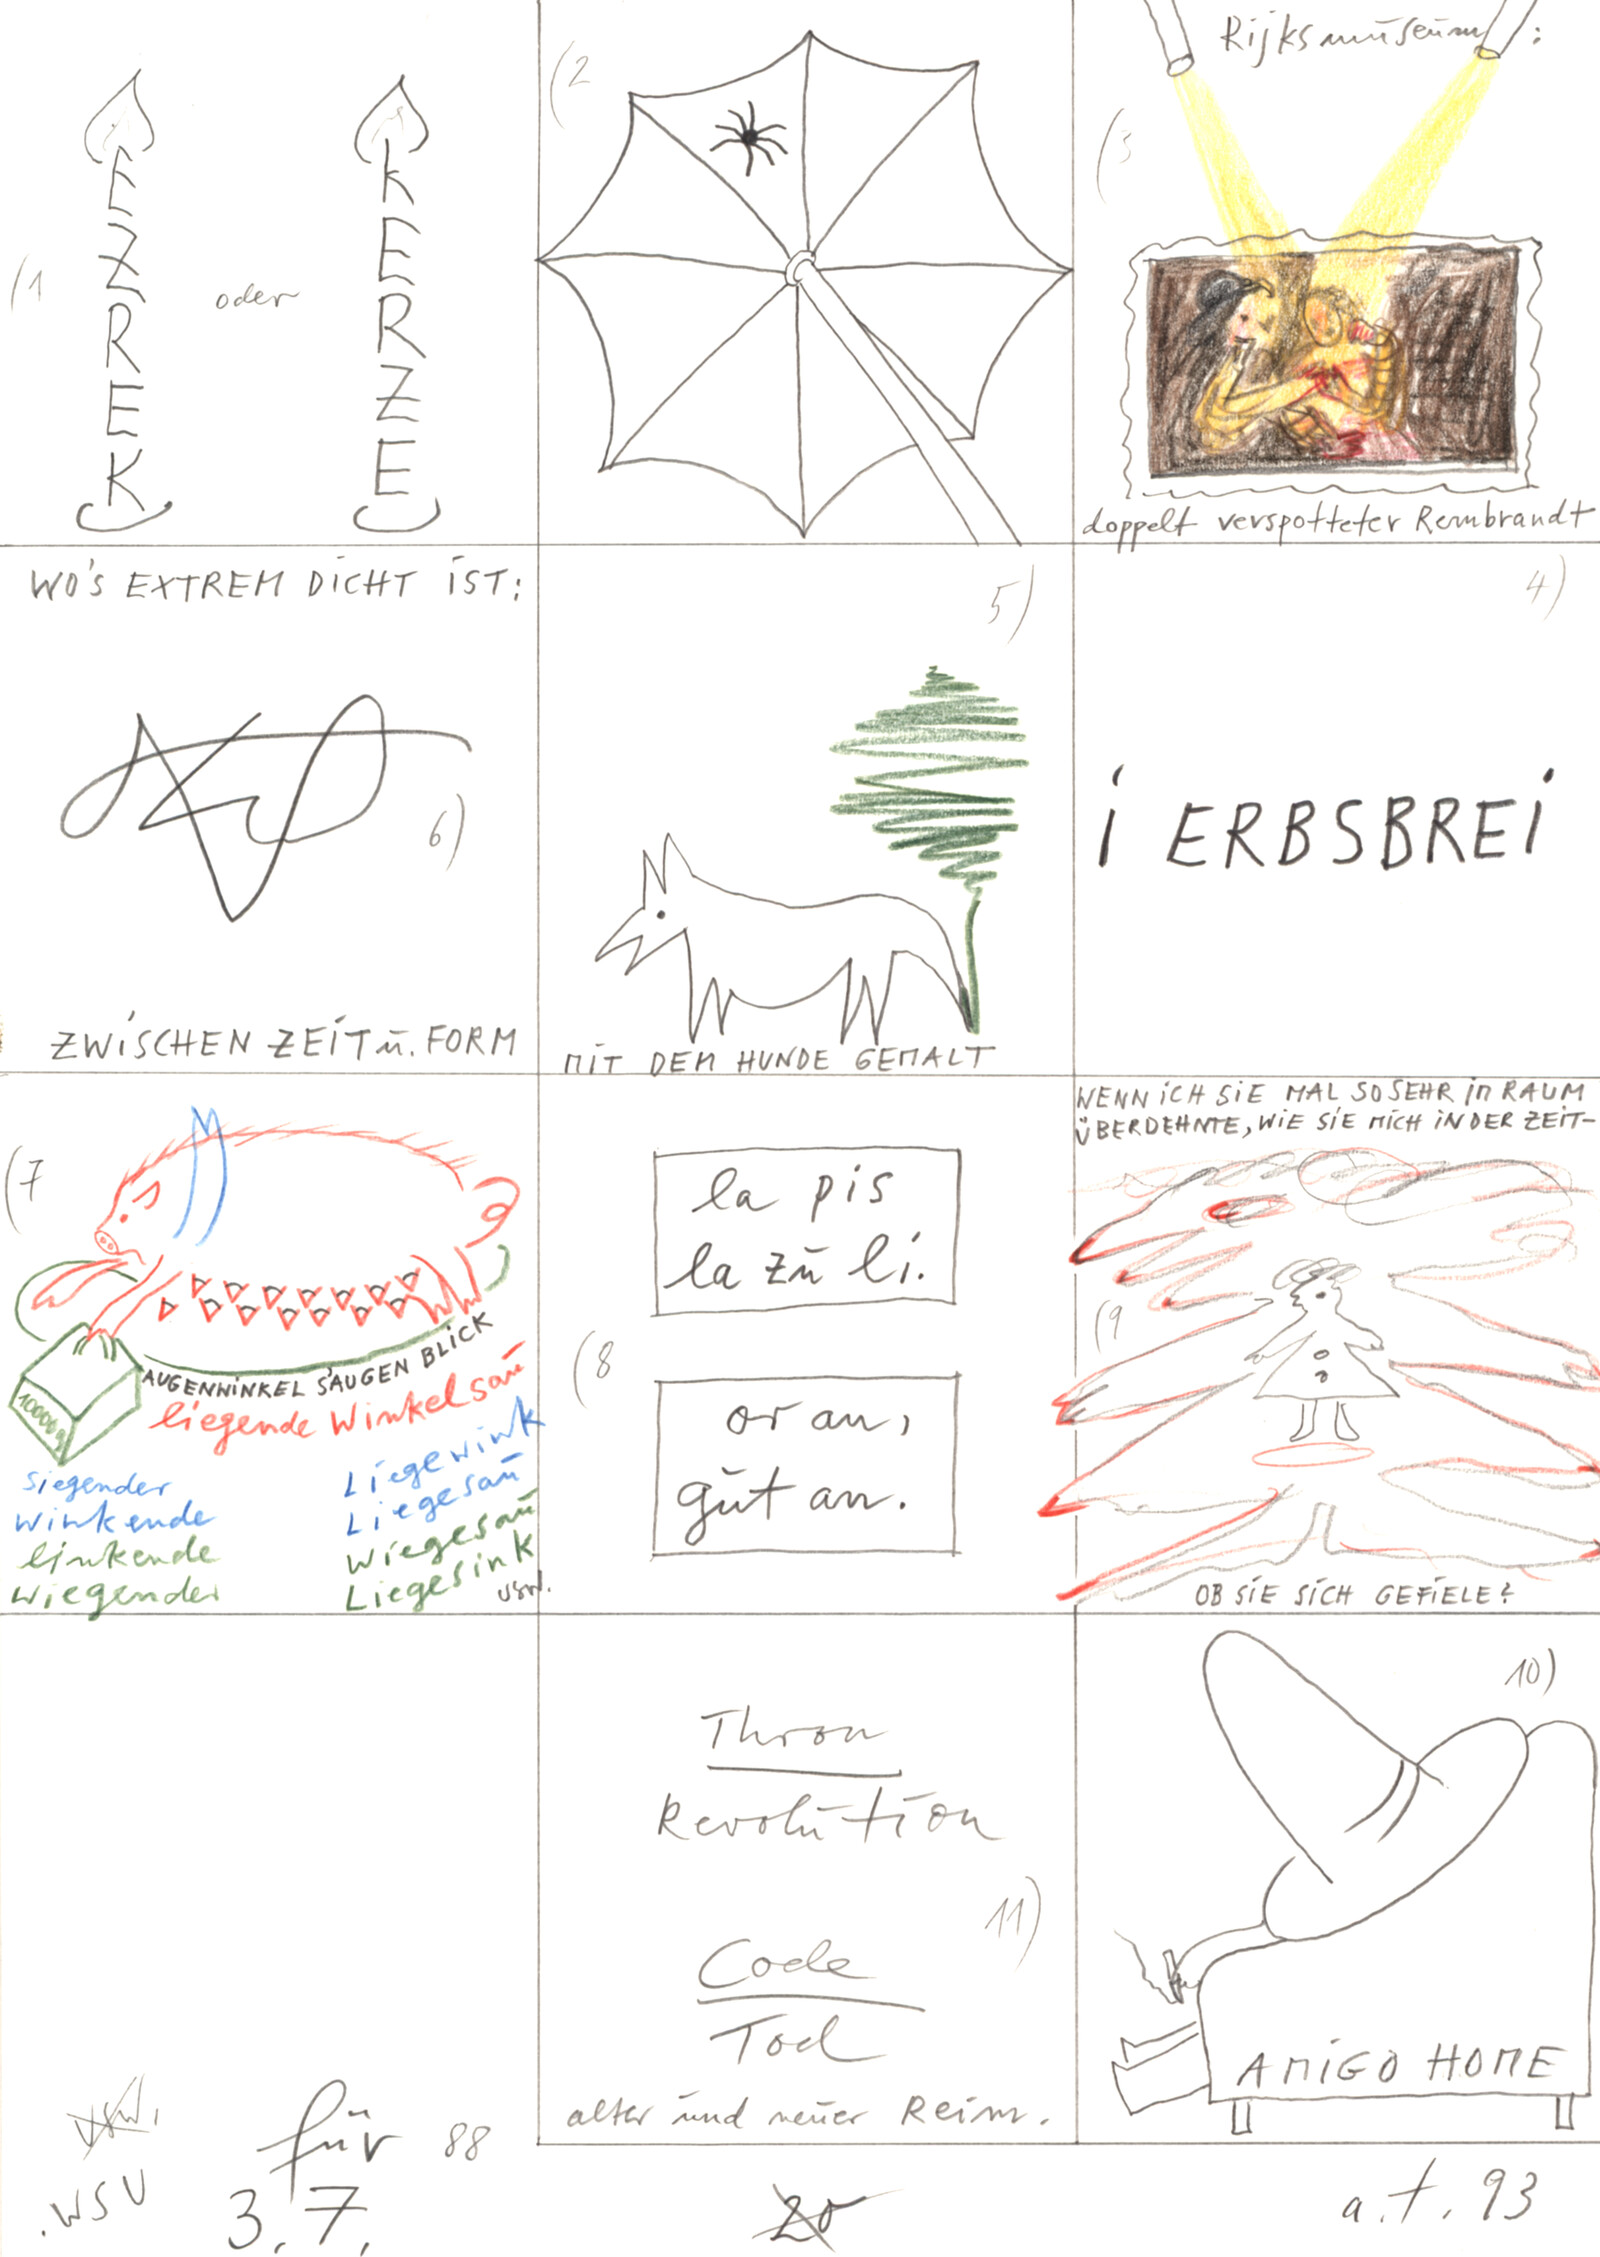 (1
E
Z
R
E
K
oder
K
E
R
Z
E
(2
Rijksmuseum:
(3
doppelt verspotteter Rembrandt
WO'S EXTREM DICHT IST:
6)
ZWISCHEN ZEIT u. FORM
5)
MIT DEM HUNDE GEMALT
4)
i ERBSBREi
(7
10000g
AUGENWINKEL SÄUGEN BLICK
liegende Winkelsau
siegender
Winkende
linkende
Wiegender
Liegewink
Liegesau
Wiegesau
Liegesink
usw.
(8
la pis
la zu li.
or an,
gut an.
WENN ICH SIE MAL SO SEHR IM RAUM
ÜBERDEHNTE, WIE SIE MICH IN DER ZEIT-
(9
OB SIE SICH GEFIELE?
Thron
Revolution
11)
Code
Tod
alter und neuer Reim.
10)
AMIGO HOME
usw.
.WSV
für
88
3.7.
20
a.t. 93